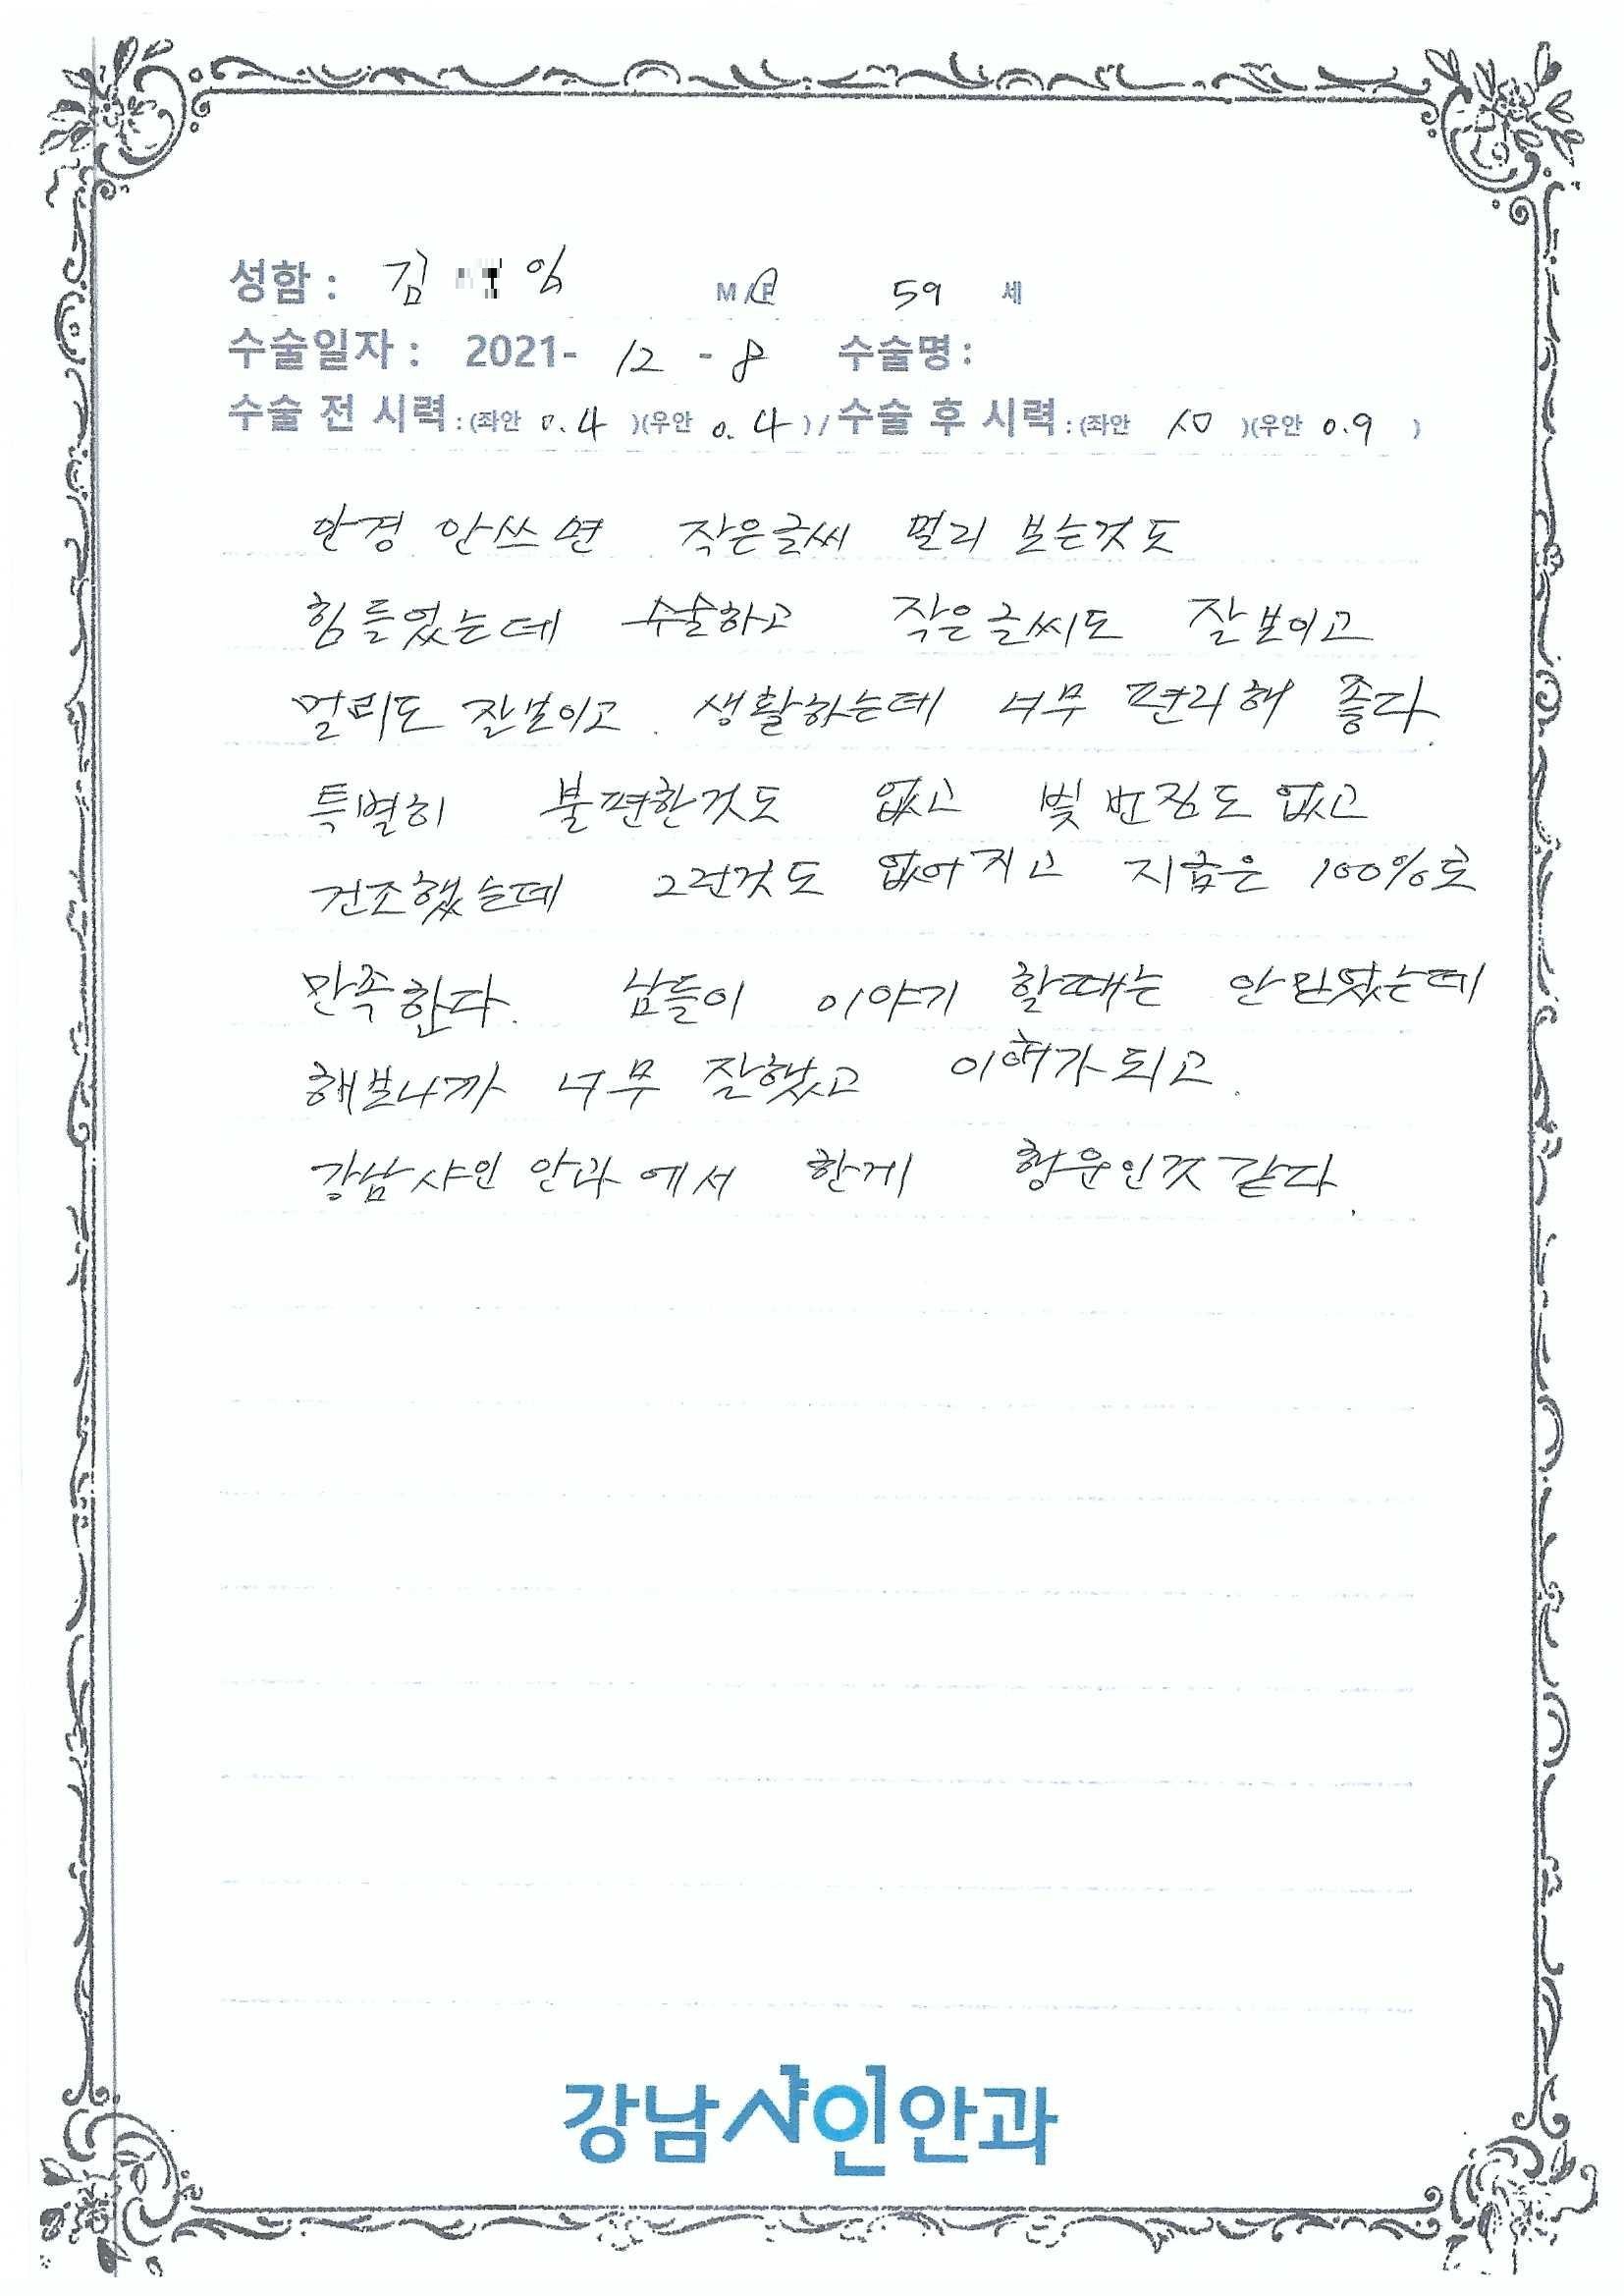 성함 : 김 임 M / F 59 세
수술일자 : 2021- 12 - 8 수술명 :
수술 전 시력 : (좌안 0.4 )(우안 0.4 ) / 수술 후 시력 : (좌안 1.0 )(우안 0.9 )
안경 안쓰면 작은글씨 멀리 보는것도
힘들었는데 수술하고 작은글씨도 잘보이고
멀리도 잘보이고. 생활하는데 너무 편리해 좋다.
특별히 불편한것도 없고 빛 번짐도 없고
건조했는데 그런것도 없어지고 지금은 100%로
만족한다. 남들이 이야기 할때는 안믿었는데
해보니까 너무 잘했고 이해가 되고.
강남샤인 안과에서 한게 행운인것 같다.
강남샤인안과